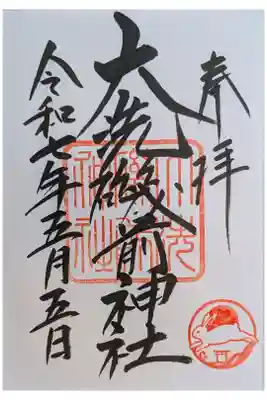 奉拝
大洗磯前神社
令和七年五月五日